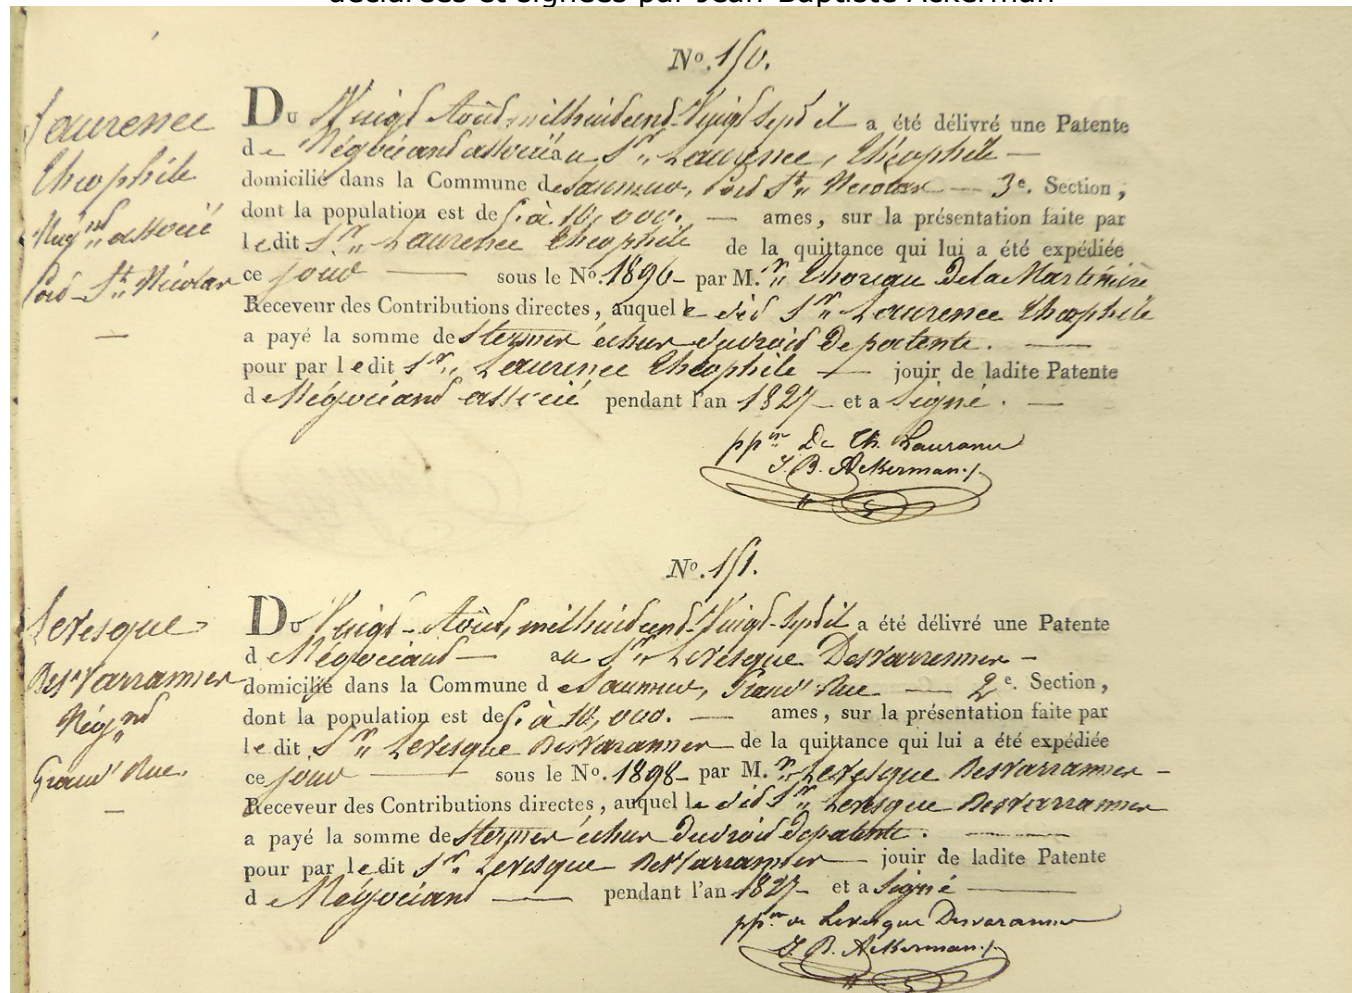 déclarées et signées par Jean-Baptiste Ackerman
Nº. 150.
Laurence
Théophile
Nég.nt associé
Pord St. Nicolas
Du Vingt Août mil huit cent Vingt Sept il a été délivré une Patente
de Négociant associé au Sr. Laurence, Théophile —
domicilié dans la Commune de Saumur, Pord St. Nicolas — 3e. Section,
dont la population est de 5. à 10,000. — ames, sur la présentation faite par
ledit Sr. Laurence Théophile de la quittance qui lui a été expédiée
ce jour — sous le Nº. 1896 - par M.r Thoreau De la Martinière
Receveur des Contributions directes, auquel le dit Sr. Laurence Théophile
a payé la somme des termes échus du droit de patente. —
pour par ledit Sr. Laurence Théophile — jouir de ladite Patente
de Négociant associé pendant l'an 1827 - et a Signé. —
pp.on De Th. Laurance
J. B. Ackerman
Nº. 151.
Levesque
Desvarannier
Nég.nd
Grand' Rue.
Du Vingt - Août, mil huit cent - Vingt - Sept il a été délivré une Patente
de Négociant — au Sr. Levesque Desvarennier -
domicilié dans la Commune de Saumur, Grand' Rue — 2e. Section,
dont la population est de 5. à 10,000. — ames, sur la présentation faite par
ledit Sr. Levesque Desvarannier — de la quittance qui lui a été expédiée
ce jour — sous le Nº. 1898 - par M.r Levesque Desvarrannier -
Receveur des Contributions directes, auquel le dit Sr. Levesque Desvarrannier
a payé la somme des termes échus du droit de patente. —
pour par ledit Sr. Levesque Desvarrannier — jouir de ladite Patente
de Négociant — pendant l'an 1827 - et a Signé —
pp.on de Levesque Desvarannier
J. B. Ackerman